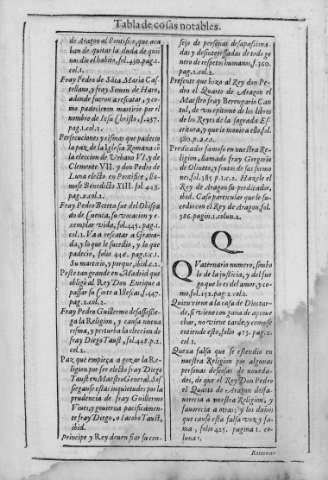 Tabla de cosas notables.
de Aragon al Pontifice, que aca
ban de quitar la duda de quiē
nos dio el habito, fol.450.pag.1.
col.1.
Fray Pedro de
Castellano, y fray Simon de Haro,
adonde fueron a rescatar, y co-
mo padecieron martirio por el
nombre de Iesu Christo, fol.457.
pag.1.col.1.
Persecuciones y cismas que padecio
la paz de la Iglesia Romana cō
la eleccion de Vrbano VI, y de
Clemente VII. y don Pedro de
Luna electo en Pontifice, lla-
mose Benedicto XIII. fol.408.
pag.2.col.1.
Fray Pedro Beteta fue del Obispa
do de Cuenca, su vocacion y ex
emplar vida, fol.445.pag.1.
col.2. Va a rescatar a Grana-
da, y lo que le sucedio, y lo que
padecio, folio 446. pag.1.c.1.
Su martyrio, y porque, ibid.c.2.
Peste tan grande en Madrid que
obligò al Rey Don Enrique a
passar su Corte a Illescas, fol.447.
pag.2.col.2.
Fray Pedro Guillermo desassossie-
ga la Religion, y causa nueua
cisma, y perturba la eleccion de
fray Diego Taust, fol.448.p.2.
col.1.
Paz que empieça a gozar la Re-
ligion por ser electo fray Diego
Taust en Maestro General. Sos
segaronse estas inquietudes por la
prudencia de fray Guillermo
Viues, y gouierna pacificamente
fray Diego, a Iacobo Taust,
ibid.
Principe y Rey deuen fiar su con-
sejo de personas desapassiona-
das, y desinteressadas de todo ge
nero de respetos humanos, f.360.
pag.2.col.2.
Presente que hizo al Rey don Pe-
dro el Quarto de Aragon el
Maestro fray Berenguario Can
tul, de que se componen los libros
de los Reyes de la sagrada Es-
critura, y que le motiuò a ello, fol.
380.p.2.c.1.
Predicador famoso en nuestra Re-
ligion, llamado fray Gregorio
de Oliuares, y frutos de sus sermo
nes, fol.385.p.1.c.2. Hazele el
Rey de Aragon su predicador,
ibid. Caso particular que le su-
cedio con el Rey de Aragon, fol.
386.pagin.1.colun.2.
Q
QVaternario numero, simbo
lo de la justicia, y del fue
go que le es del amor, y co-
mo, fol.152.pag.2.col.1.
Quien viene a la casa de Dios tar-
de, si viene con gana de aproue
char, no viene tarde, y como se
entiende esto, folio 473. pag.2.
col.2.
Quexa falsa que se estendio en
nuestra Religion por algunas
personas deseosas de noueda-
des, de que el Rey Don Pedro
el Quarto de Aragon desfa-
uorecia a nuestra Religion, y
fauorecia a otras; y los daños
que causò esta falsa voz y fa-
ma, folio 425. pagina 1. co-
luna 1.